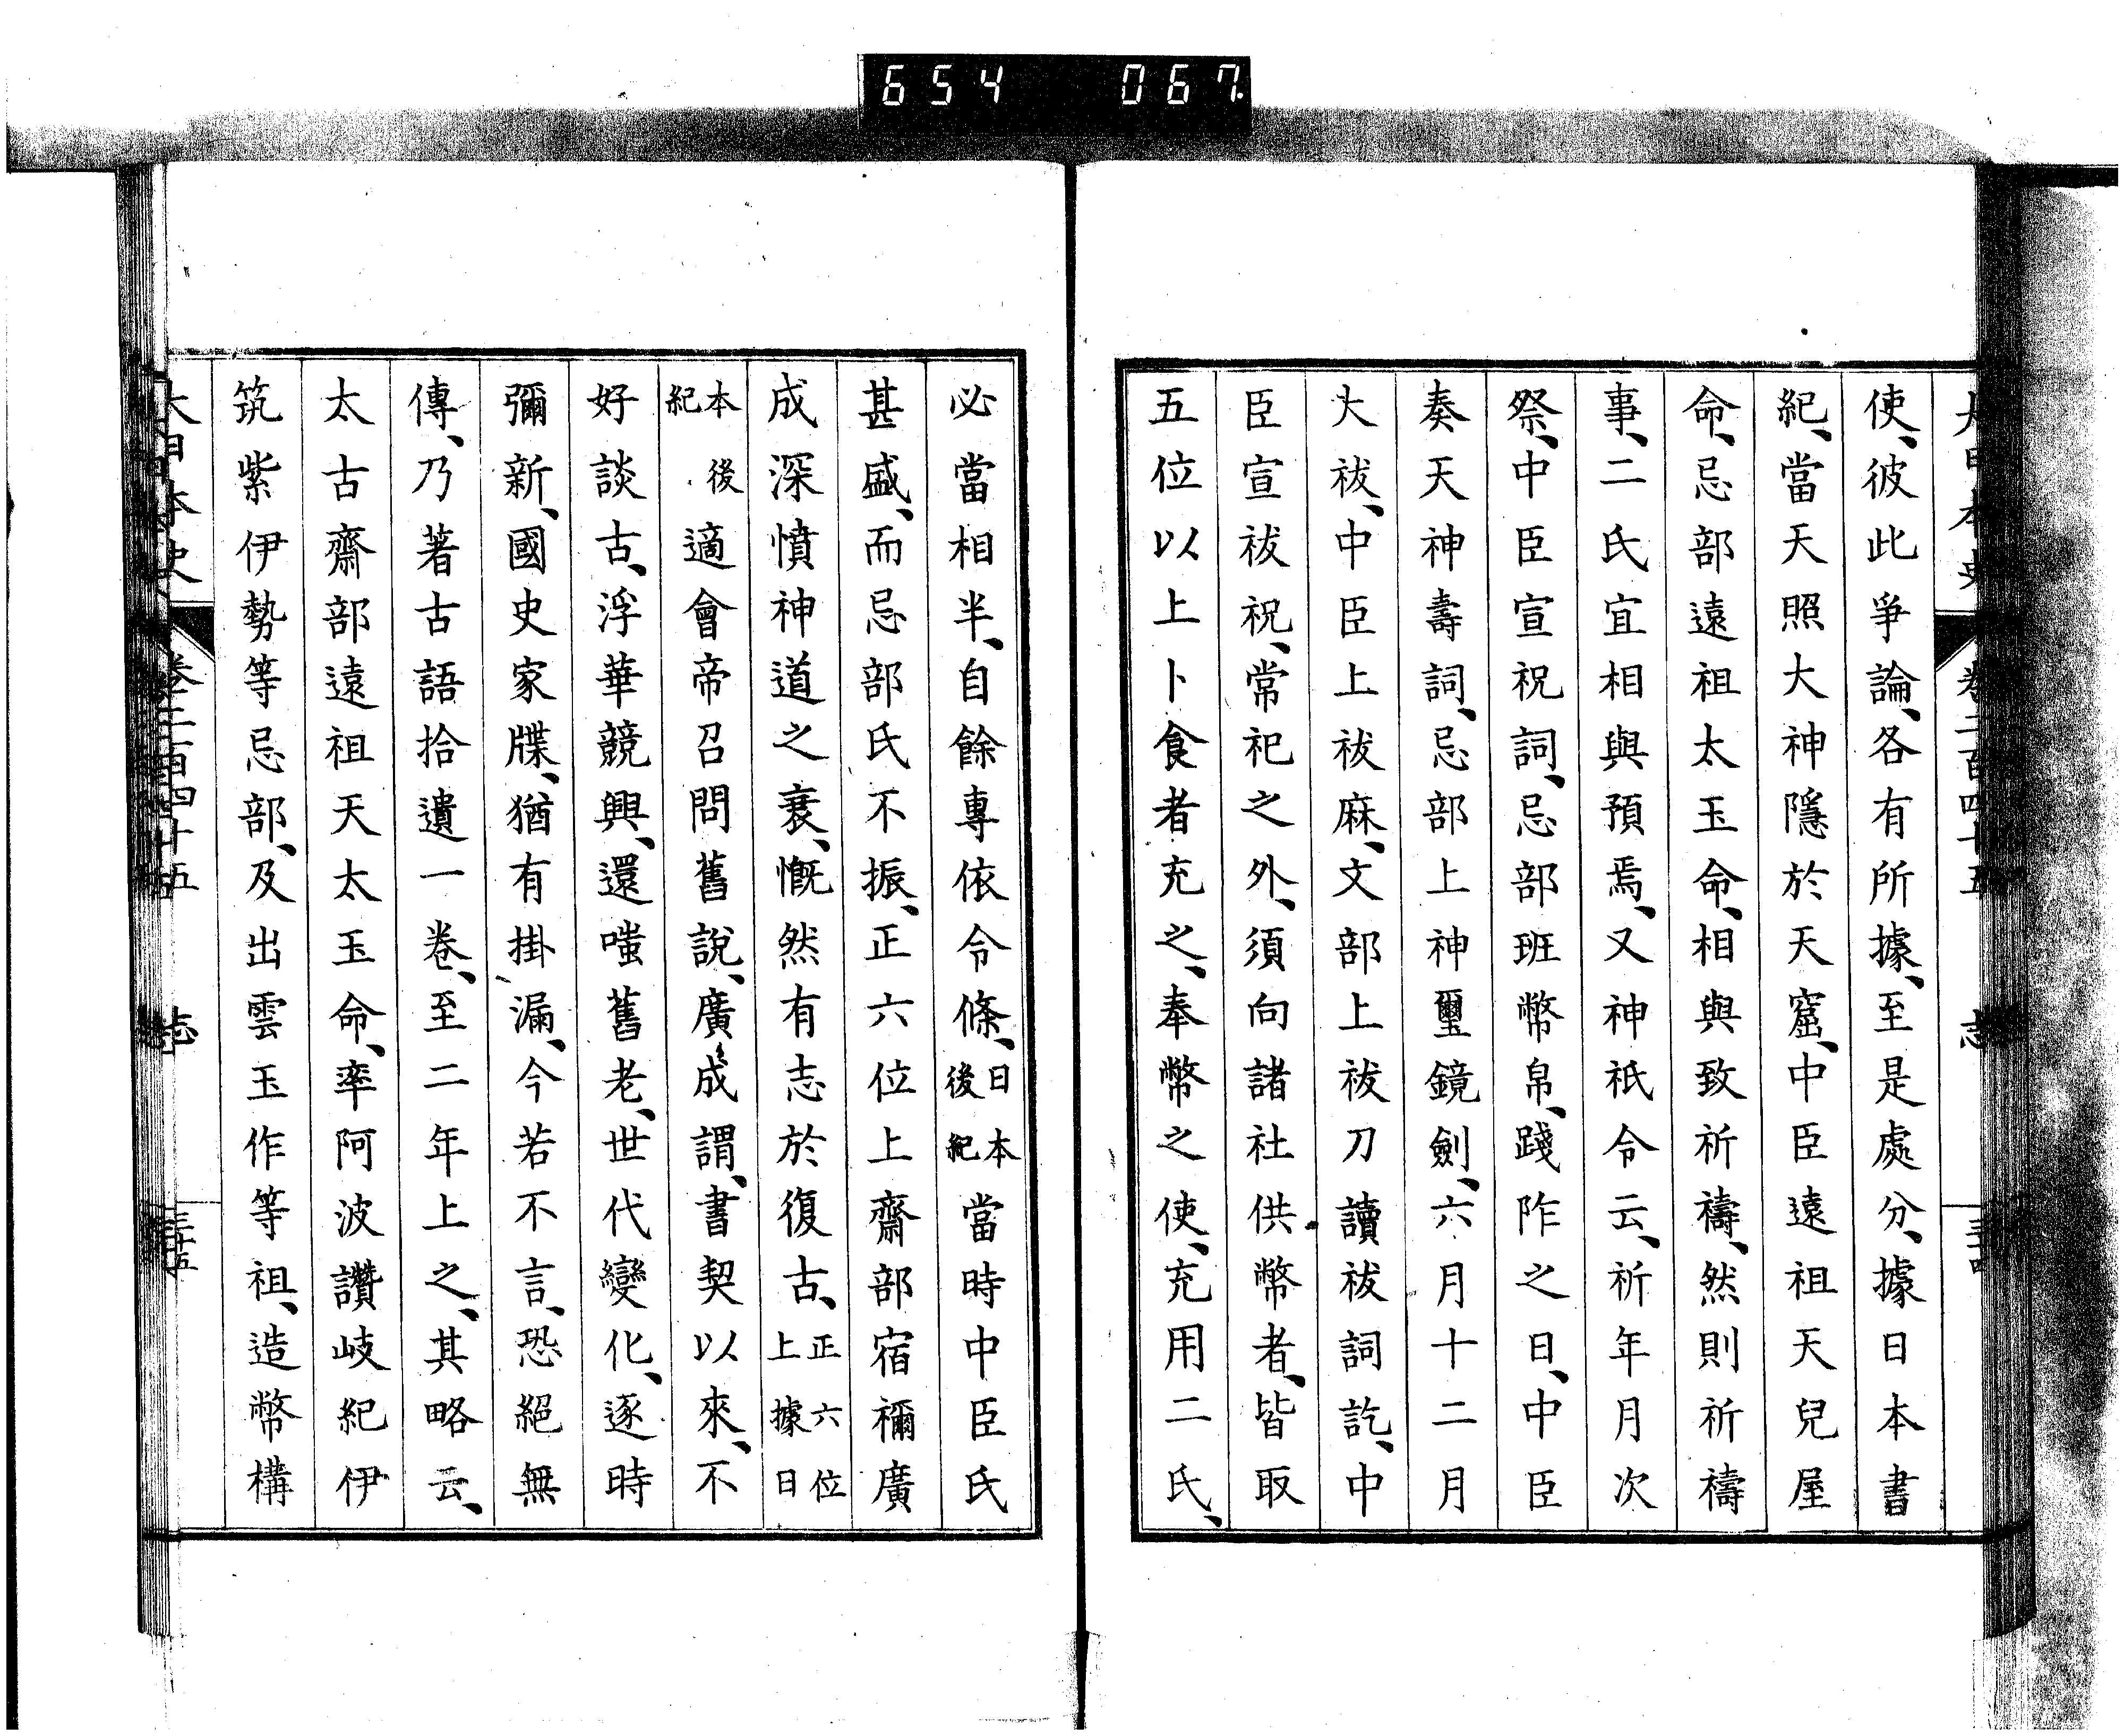 654 067
大日本史 卷二百四十五 志 三十四
使、彼此爭論、各有所據、至是處分、據日本書
紀、當天照大神隱於天窟、中臣遠祖天兒屋
命、忌部遠祖太玉命、相與致祈禱、然則祈禱
事、二氏宜相與預焉、又神祇令云、祈年月次
祭、中臣宣祝詞、忌部班幣帛、踐阼之日、中臣
奏天神壽詞、忌部上神璽鏡劍、六月十二月
大祓、中臣上祓麻、文部上祓刀讀祓詞訖、中
臣宣祓祝、常祀之外、須向諸社供幣者、皆取
五位以上卜食者充之、奉幣之使、充用二氏、
必當相半、自餘專依令條、日本後紀當時中臣氏
甚盛、而忌部氏不振、正六位上齋部宿禰廣
成深憤神道之衰、慨然有志於復古、正六位上據日
本後紀適會帝召問舊說、廣成謂、書契以來、不
好談古、浮華競興、還嗤舊老、世代變化、逐時
彌新、國史家牒、猶有掛漏、今若不言、恐絕無
傳、乃著古語拾遺一卷、至二年上之、其略云、
太古齋部遠祖天太玉命、率阿波讚岐紀伊
筑紫伊勢等忌部、及出雲玉作等祖、造幣構
大日本史 卷二百四十五 志 三十五